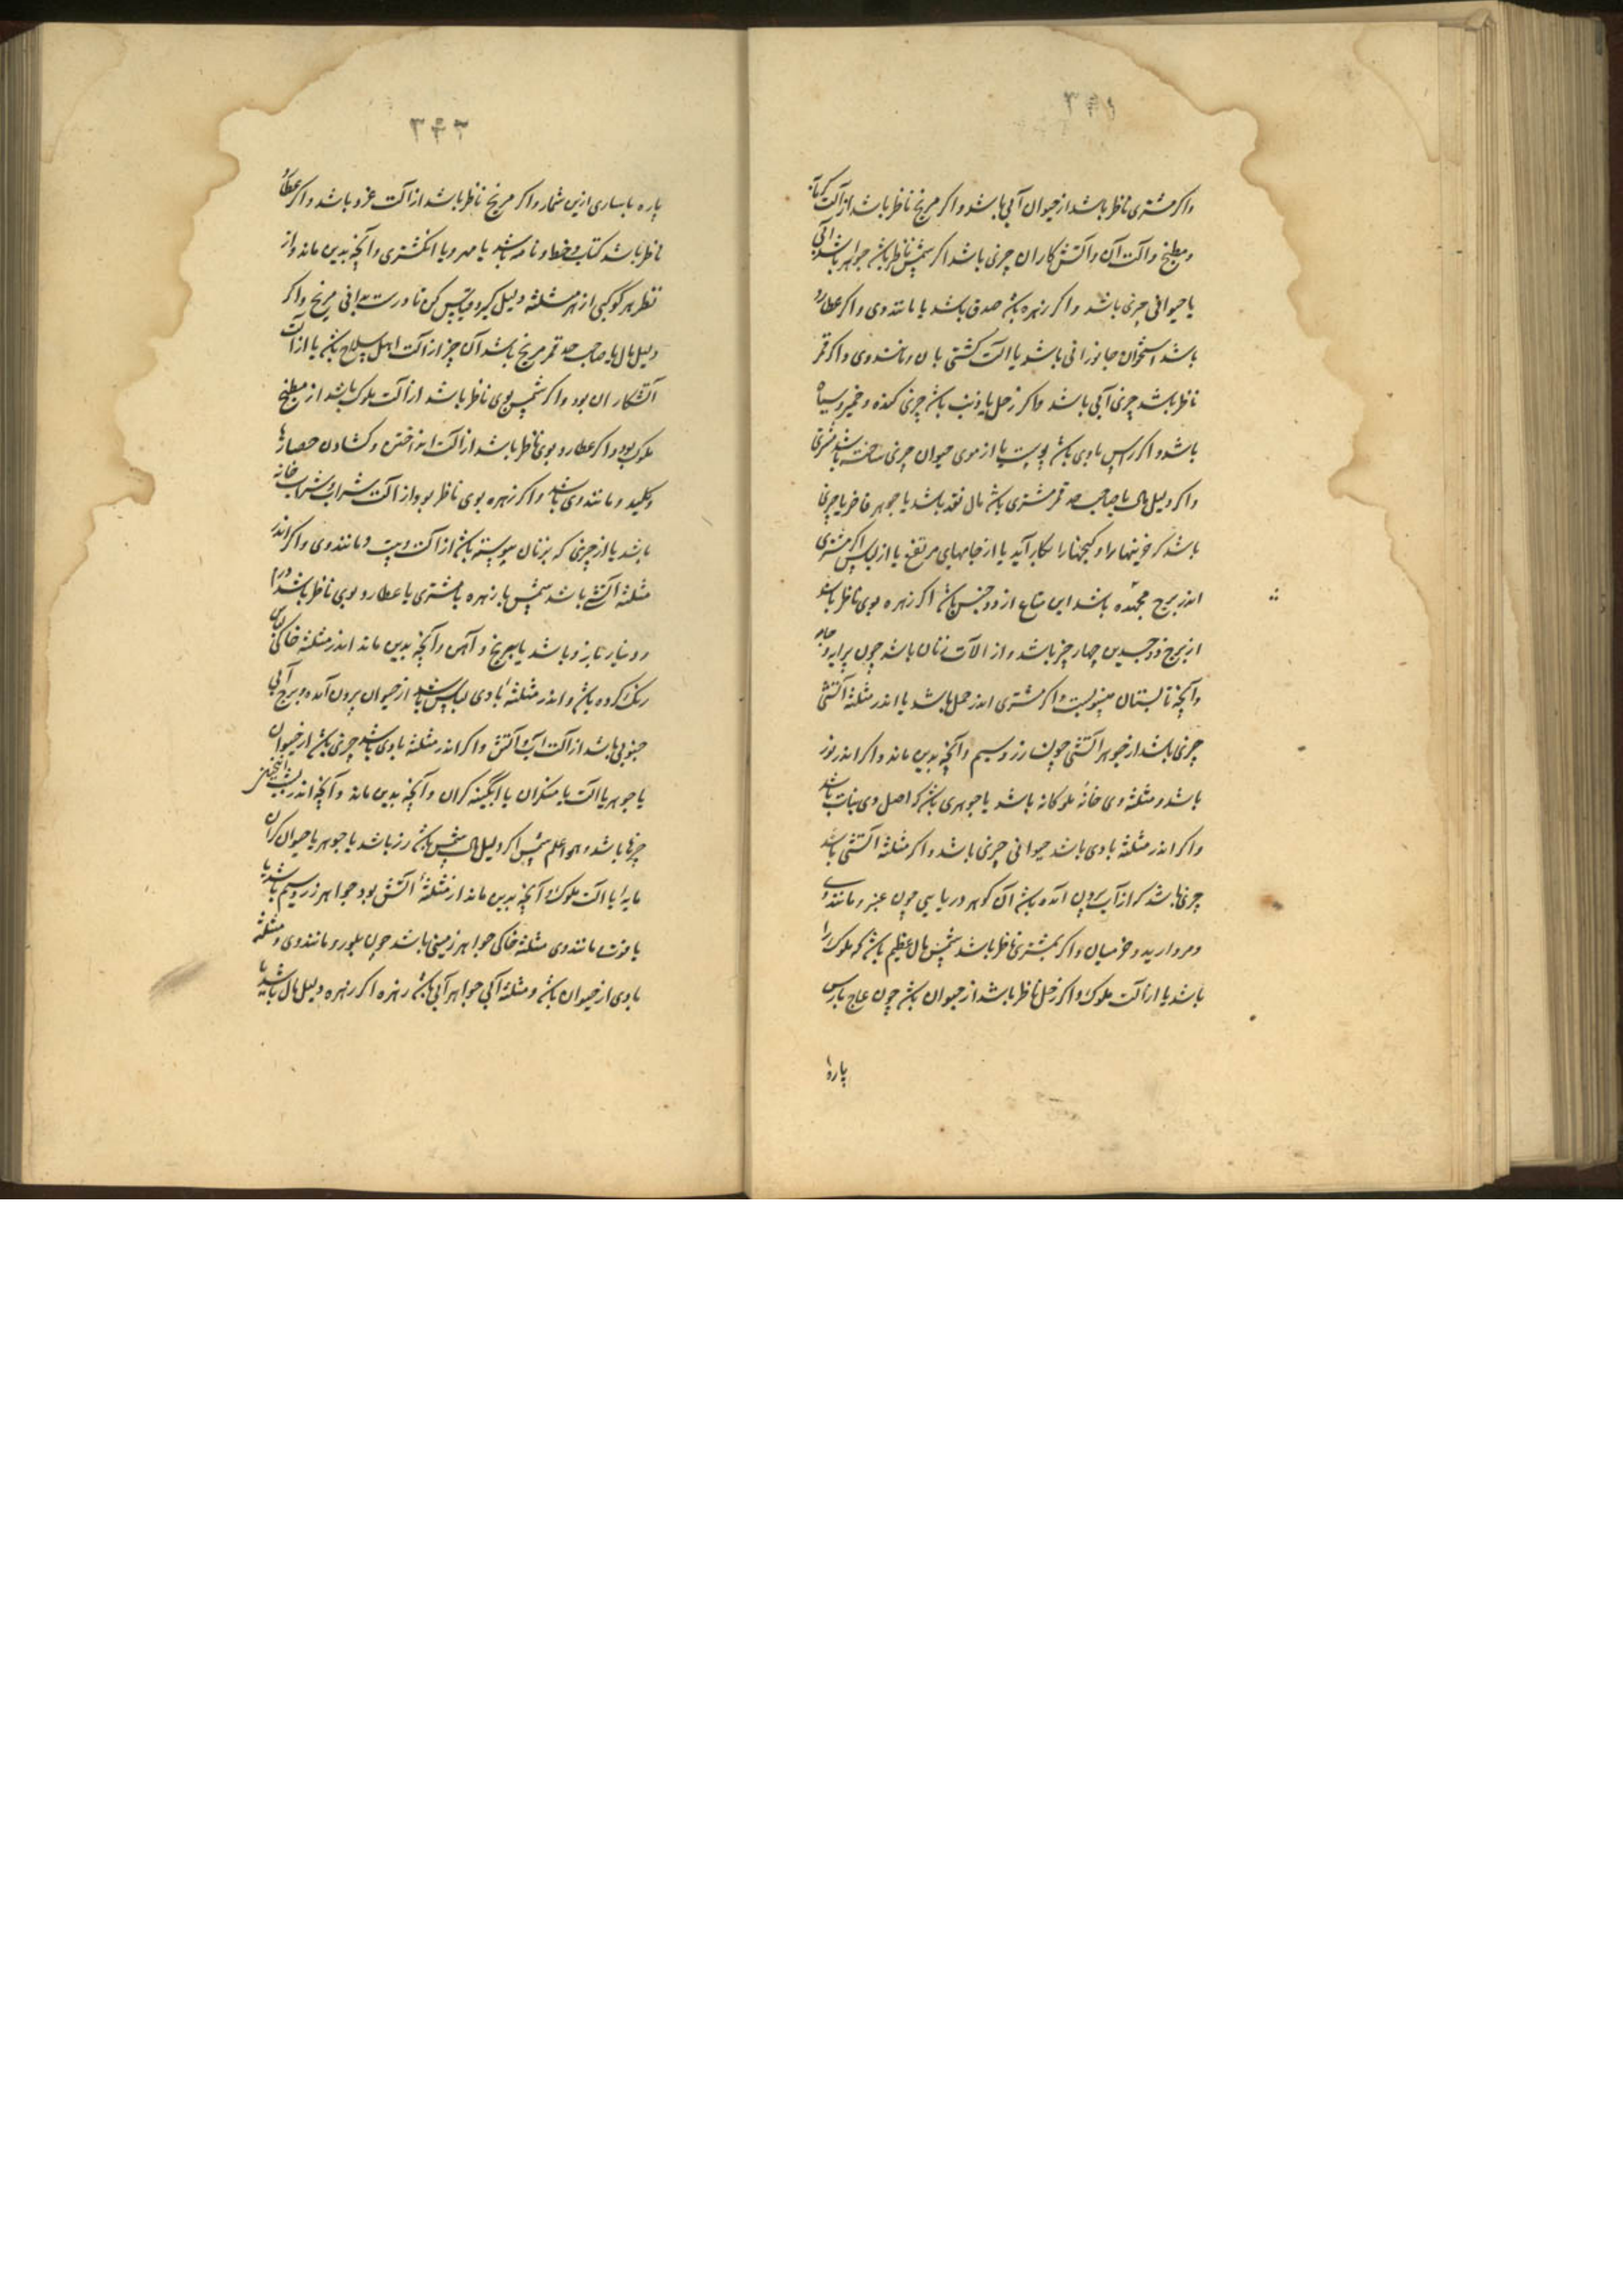 واکر مشتری ناظر باشد از حیوان آبی باشد واکر مریخ ناظر باشد از آلت کرمابه
ومطبخ وآلت آن وآتش کاران چیزی باشد اکر شمس ناظر باشد جواهر باشد آبی
یا حیوانی چیزی باشد واکر زهره باشد صدف باشد یا مانند وی واکر عطارد
باشد استخوان جانورانی باشد یا آلت کشتی بان ومانند وی واکر قمر
ناظر باشد چیزی آبی باشد واکر زحل یا ذنب باشد چیزی کنده وخمیر وسیاه
باشد واکر راس با وی باشد پوست یا از موی حیوان چیزی ساخته باشد
واکر دلیل مال یا صاحب حد قمر مشتری باشد مال نقد باشد یا جوهر فاخر یا چیزی
باشد که خزینها را وکنجها را بکار آید یا از جامهای مرتفع یا از لباس اکر مشتری
اندر برج مجسده باشد این متاع از دو جنس باشد اکر زهره بوی ناظر باشد
از برج ذو جسدین چهار چیز باشد واز آلات زنان باشد چون پیرایه وجامه
وآنچه تابستان پوشند واکر مشتری اندر حمل باشد یا اندر مثلثه آتشی
چیزی باشد از جوهر آتشی چون زر وسیم وآنچه بدین ماند واکر اندر ثور
باشد ومثلثه وی خانه ملوکانه باشد یا جوهری باشد که اصل وی نبات باشد
واکر اندر مثلثه بادی باشد حیوانی چیزی باشد واکر مثلثه آتشی باشد
چیزی باشد که از آب بیرون آمده باشد آن کوهر دریایی چون عنبر ومانند وی
ومروارید واکر بمشتری ناظر باشد شمس مال عظیم باشد که ملوک را
باشد یا از آلت ملوک واکر زحل ناظر باشد از حیوان باشد چون عاج
پاره
۳۴۲
پاره یا بساری ازین شمار واکر مریخ ناظر باشد از آلت غزو باشد واکر عطارد
ناظر باشد کتاب وخط ونامه باشد یا مهر ویا انکشتری وآنچه بدین ماند واز
نظر هر کوکبی از هر مثلثه دلیل کیر وقیاس کن تا درست بدانی مریخ واکر
دلیل مال یا صاحب حد قمر مریخ باشد آن چیز از آلت اهل سلاح باشد یا از آلت
آتشکاران بود واکر شمس بوی ناظر باشد از آلت ملوک باشد از مطبخ
ملوک بود واکر عطارد بوی ناظر باشد از آلت انداختن وکشادن حصارها
وکلید ومانند وی باشد واکر زهره بوی ناظر بود از آلت شراب وشرابخانه
باشد یا از چیزی که بزنان پیوسته باشد از آلت ومانند وی واکر اندر
مثلثه آتشی باشد شمس یا زهره یا مشتری یا عطارد بوی ناظر باشد درم
ودینار باشد یا برنج وآهن وآنچه بدین ماند اندر مثلثه خاکی
رنک کرده باشد واندر مثلثه بادی لباس باشد از حیوان بیرون آمده وبرج آبی
جنوبی باشد از آلت آب وآتش واکر اندر مثلثه بادی باشد چیزی باشد از حیوان
یا جوهر یا آلت یا مسکران یا آبکینه کران وآنچه بدین ماند وآنچه اندر
چیزها باشد وهو اعلم شمس اکر دلیل مال شمس باشد زر باشد یا جوهر یا حیوان کران
مایه یا آلت ملوک وآنچه بدین ماند از مثلثه آتش بود جواهر زر وسیم باشد یا
یاقوت مانند وی مثلثه خاکی جواهر زمینی باشد چون بلور ومانند وی ومثلثه
بادی از حیوان باشد ومثلثه آبی جواهر آبی باشد زهره اکر زهره دلیل مال باشد یا